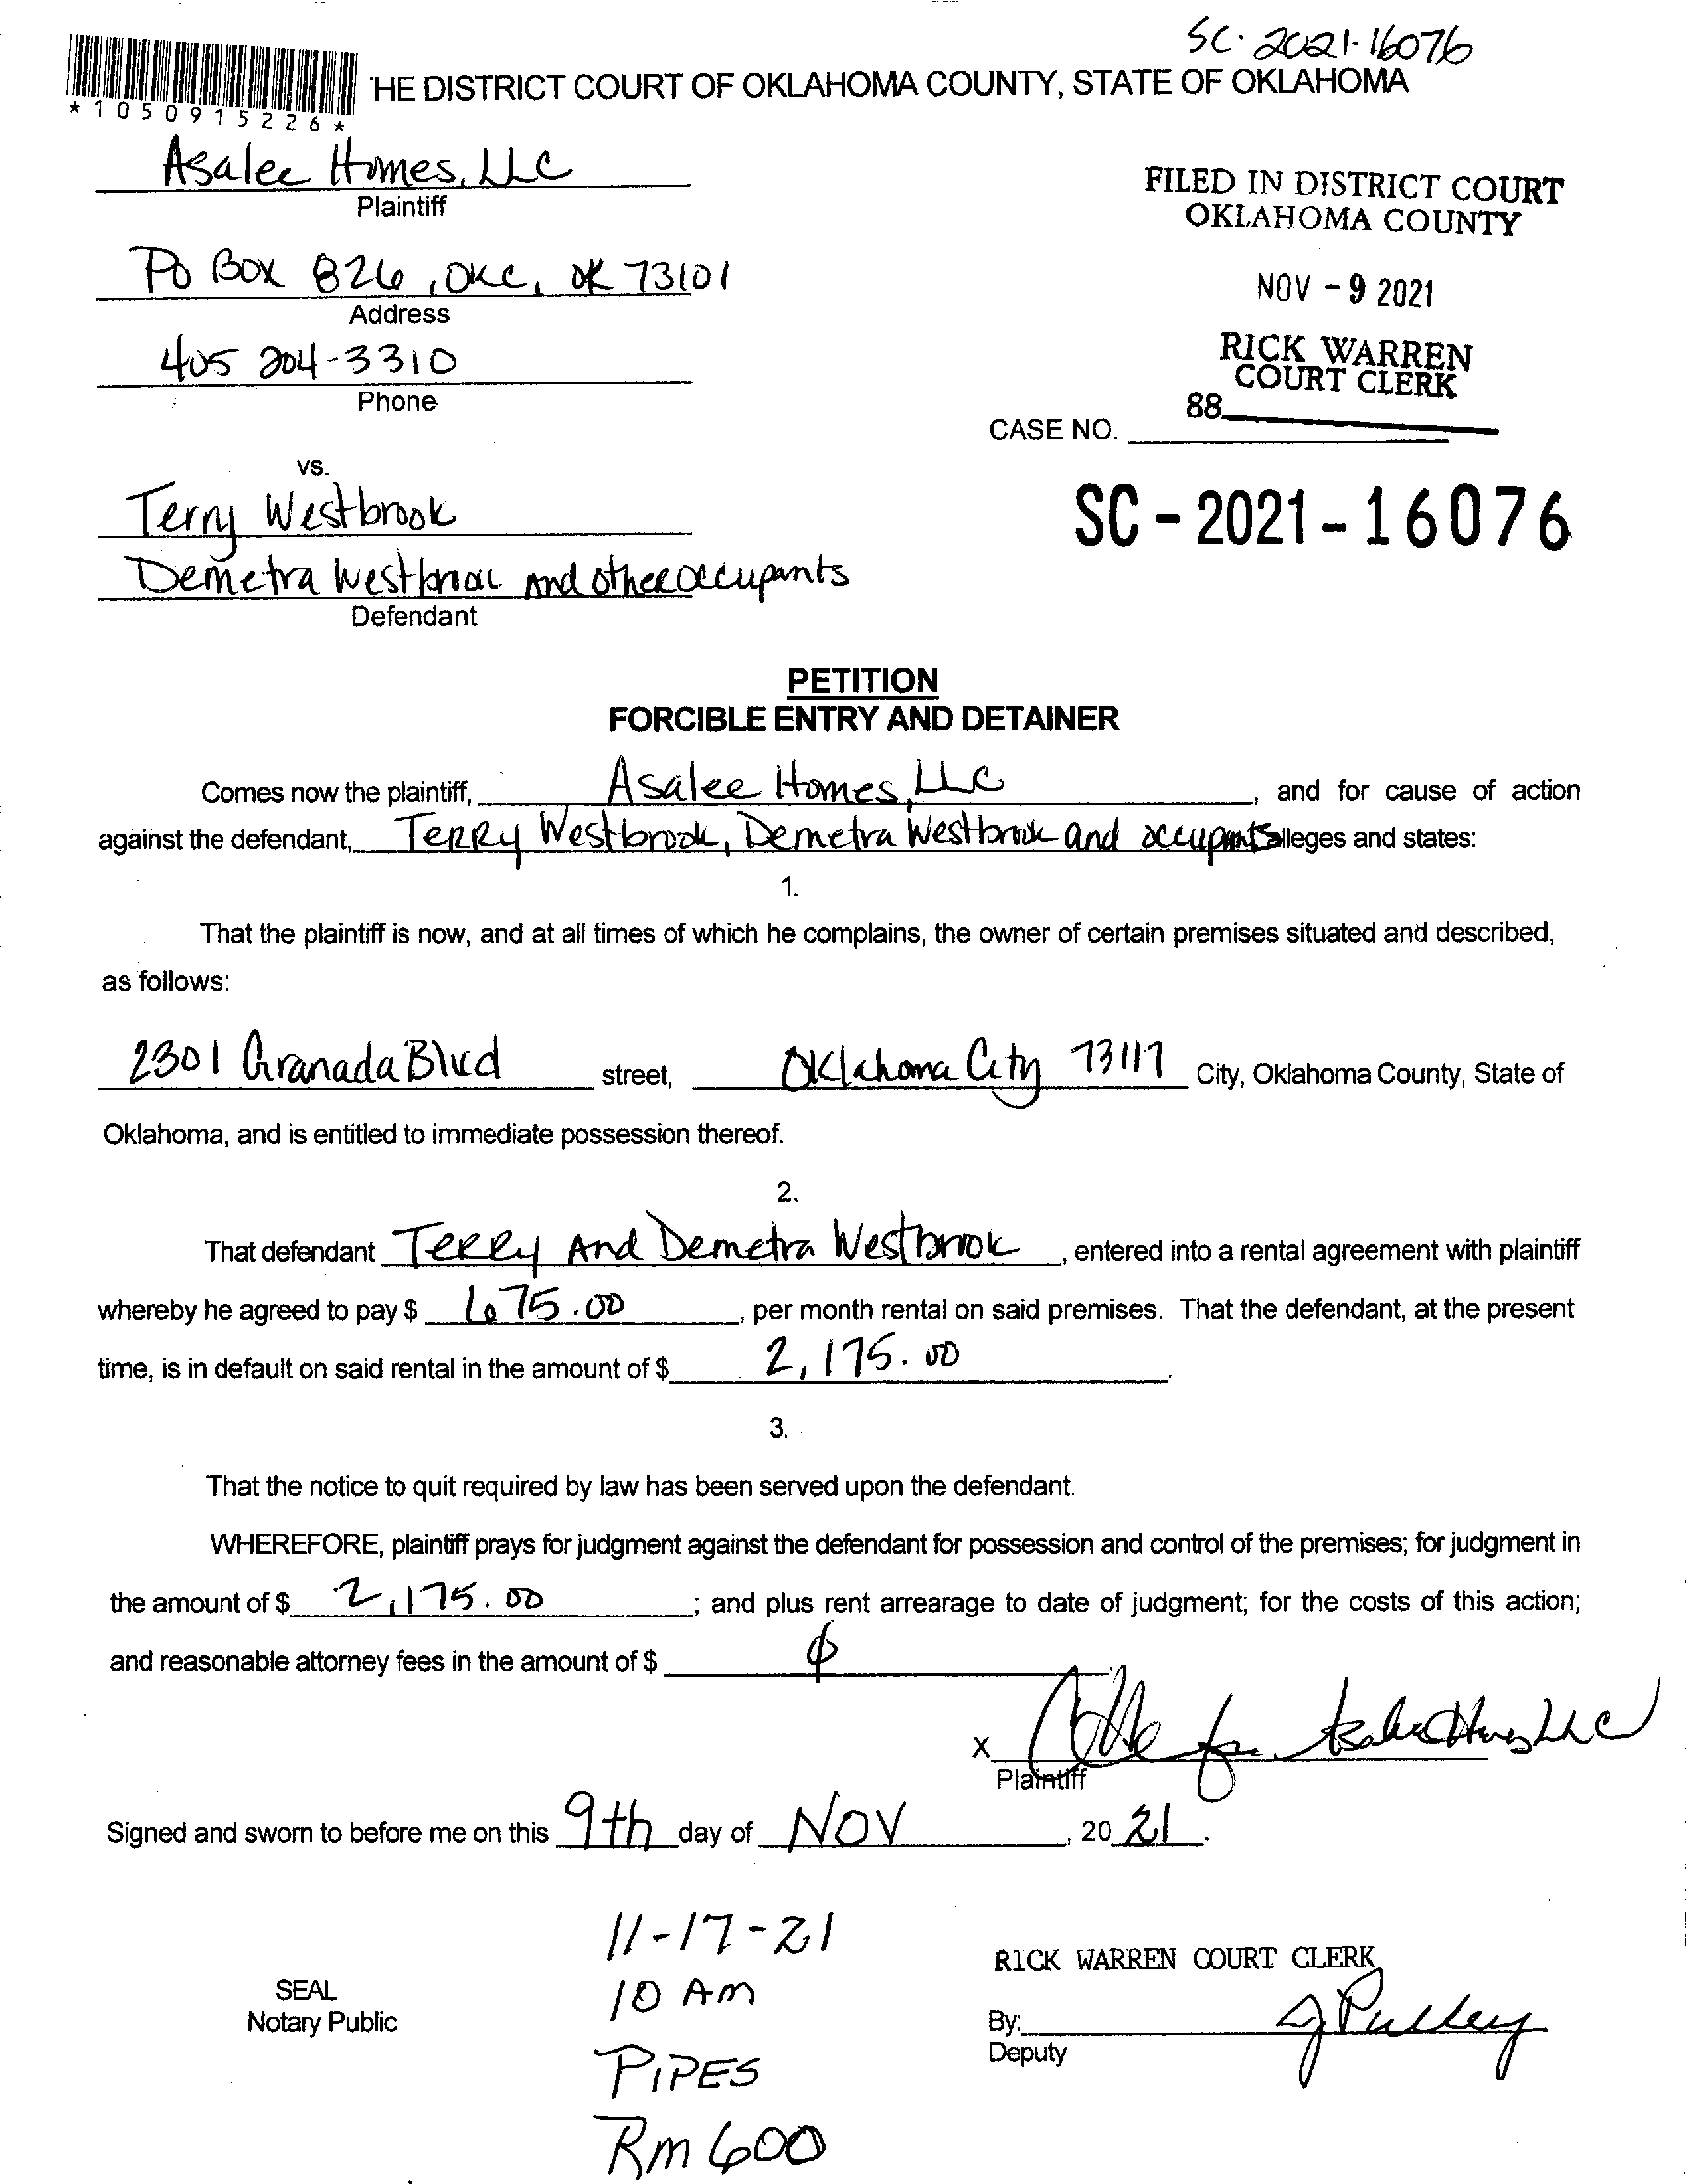 SC-2021-16076
*1050915226*
THE DISTRICT COURT OF OKLAHOMA COUNTY, STATE OF OKLAHOMA
Asalee Homes, LLC
Plaintiff
FILED IN DISTRICT COURT
OKLAHOMA COUNTY
PO Box 826, OKC, OK 73101
Address
NOV - 9 2021
405 204-3310
Phone
RICK WARREN
COURT CLERK
88
CASE NO.
vs.
Terry Westbrook
SC - 2021 - 16076
Demetra Westbrook and other occupants
Defendant
PETITION
FORCIBLE ENTRY AND DETAINER
Comes now the plaintiff, Asalee Homes, LLC, and for cause of action
against the defendant, Terry Westbrook, Demetra Westbrook and occupants alleges and states:
1.
That the plaintiff is now, and at all times of which he complains, the owner of certain premises situated and described,
as follows:
2301 Granada Blvd street, Oklahoma City 73117 City, Oklahoma County, State of
Oklahoma, and is entitled to immediate possession thereof.
2.
That defendant Terry And Demetra Westbrook, entered into a rental agreement with plaintiff
whereby he agreed to pay $ 675.00, per month rental on said premises. That the defendant, at the present
time, is in default on said rental in the amount of $ 2,175.00.
3.
That the notice to quit required by law has been served upon the defendant.
WHEREFORE, plaintiff prays for judgment against the defendant for possession and control of the premises; for judgment in
the amount of $ 2,175.00; and plus rent arrearage to date of judgment; for the costs of this action;
and reasonable attorney fees in the amount of $ ϕ
X for Asalee Homes LLC
Plaintiff
Signed and sworn to before me on this 9th day of Nov, 20 21.
11-17-21
RICK WARREN COURT CLERK
SEAL
10 AM
Notary Public
By: J Pulley
Deputy
PIPES
Rm 600